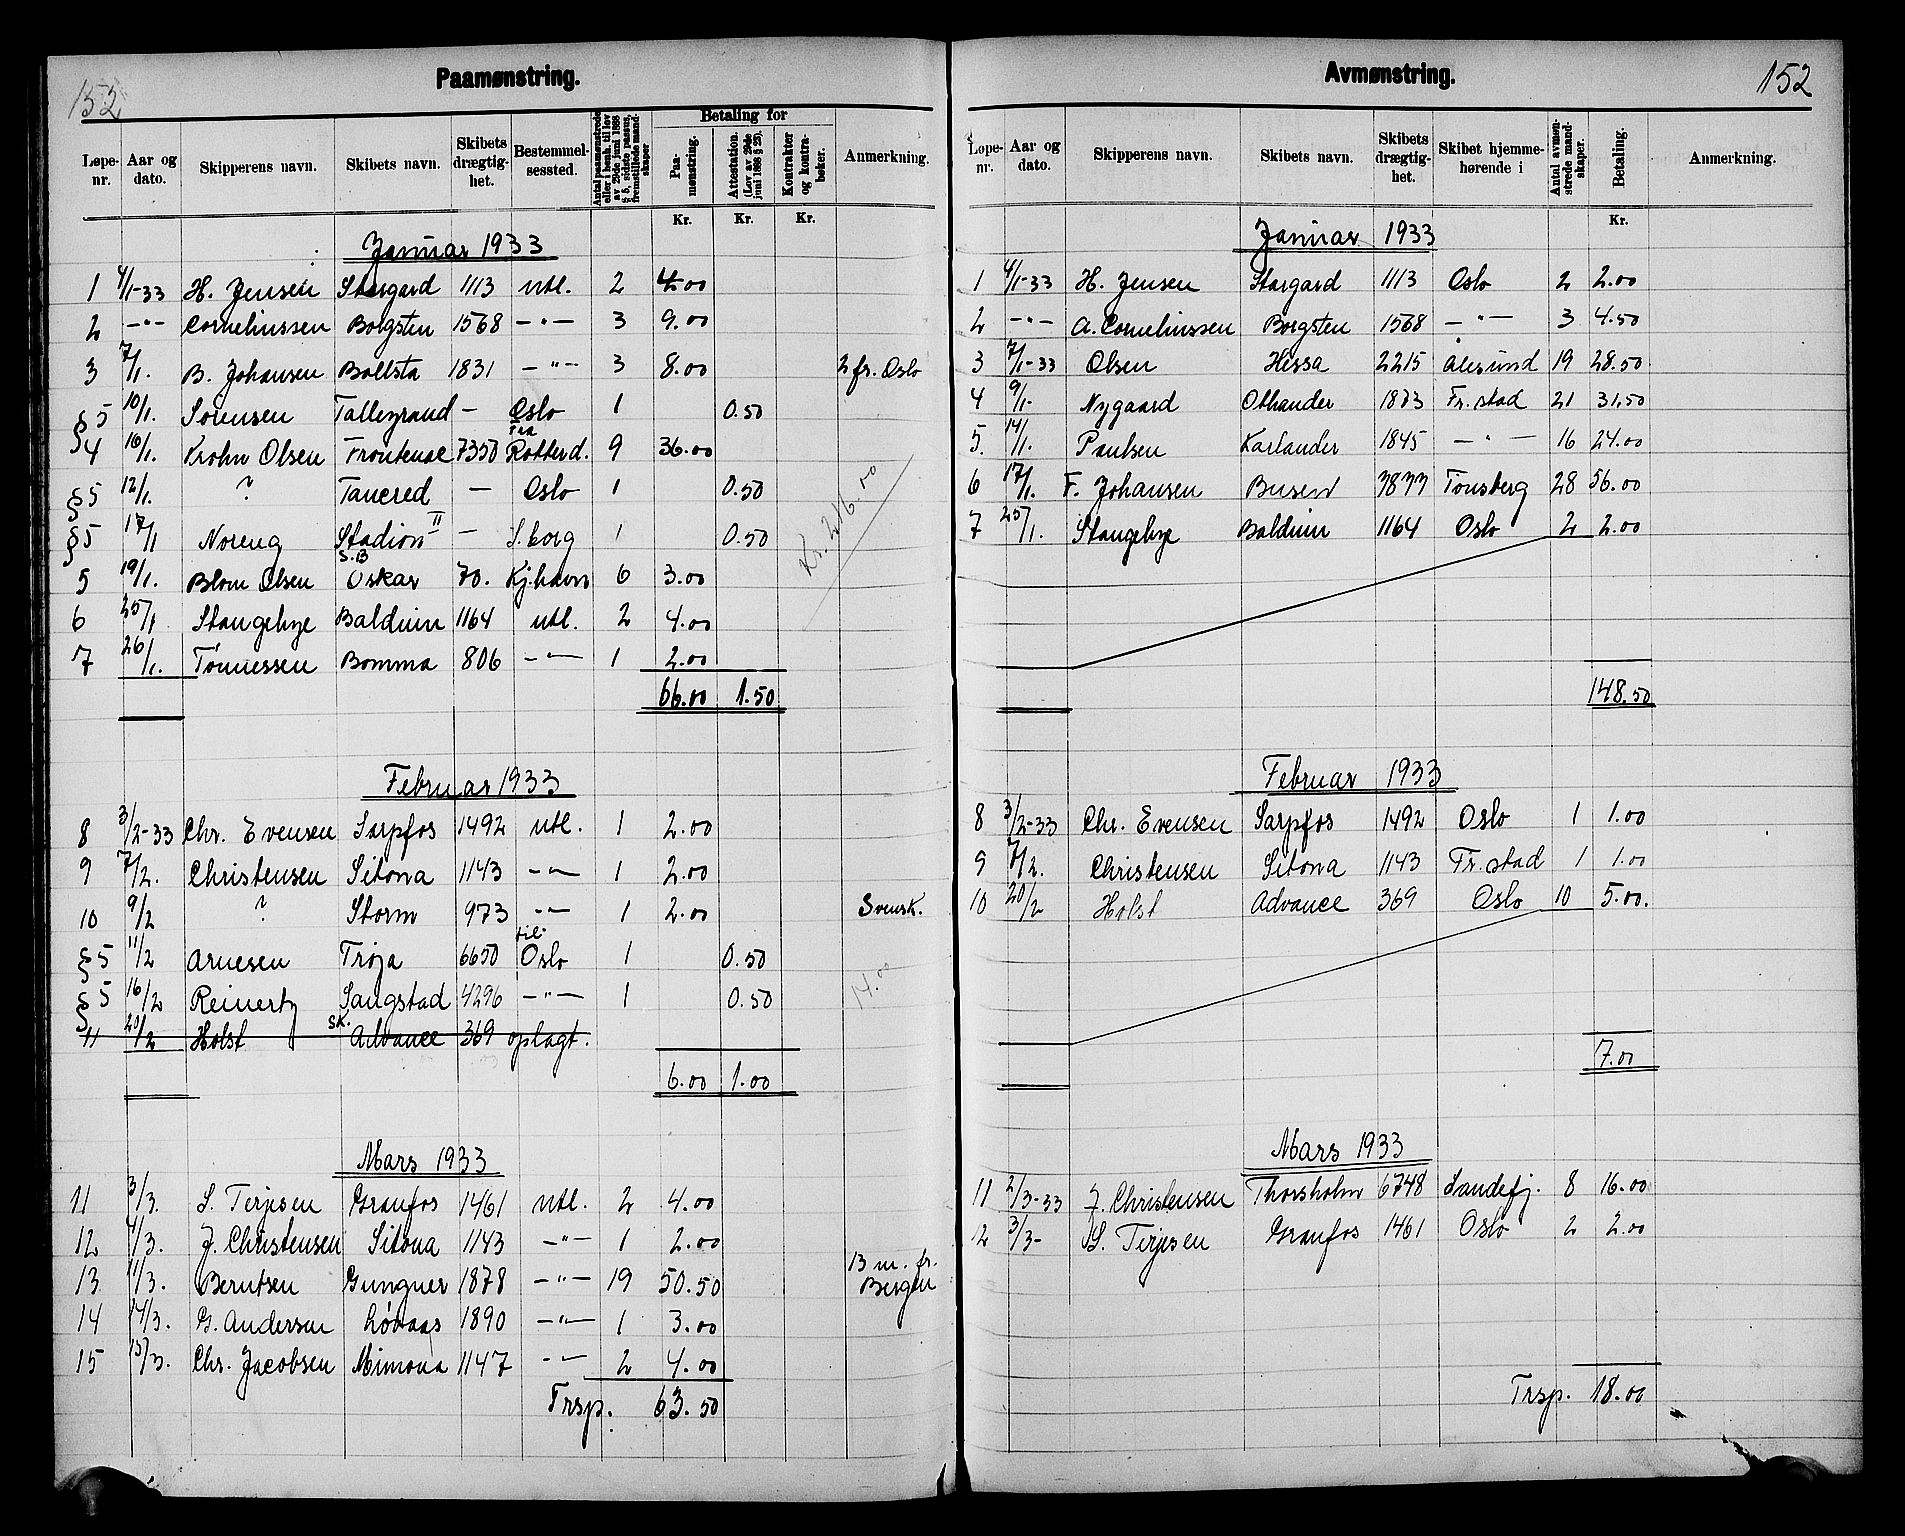 152
Paamønstring.
Løpe-nr. Aar og dato. Skipperens navn. Skibets navn. Skibets drægtig-het. Bestemmel-sessted. Antal paamønstrede eller i henh. til lov av 29de juni 1888 § 5, sidste passus, fremstillede mand-skaper Betaling for Paa-mønstring. Attestation. (Lov av 29de juni 1888 § 25). Kontrakter og kontra-bøker. Anmerkning.
Kr. Kr. Kr.
Januar 1933
1 4/1-33 H. Jensen Stargard 1113 utl. 2 4.00
2 -"- Corneliussen Borgsten 1568 -"- 3 9.00
3 7/1. B. Johansen Bollsta 1831 -"- 3 8.00 2 fr. Oslo
§ 5 10/1. Sørensen Talleyrand - Oslo 1 0.50
4 10/1. Krohn Olsen Frontenac 7350 Rotterd. 9 36.00
§ 5 12/1. ? Tancred - Oslo 1 0.50
§ 5 17/1 Noreng Stadion II - S.borg 1 0.50
5 19/1. Blom Olsen S.B Oskar 70. Kj.havn 6 3.00
6 25/1 Stangebye Balduin 1164 utl. 2 4.00
7 26/1. Tønnessen Bomma 806 -"- 1 2.00
66.00 1.50
Kr. 216.00
Februar 1933
8 3/2-33 Chr. Evensen Sarpfos 1492 utl. 1 2.00
9 7/2. Christensen Sitona 1143 -"- 1 2.00
10 9/2 ? Storm 973 -"- 1 2.00 Svensk.
§ 5 11/2 Arnesen Trøja 6650 til Oslo 1 0.50
§ 5 16/2 Reinertz Sangstad 4296 -"- 1 0.50
14.00
11 20/2 Holst sk. Advance 369 oplagt.
6.00 1.00
Mars 1933
11 3/3. S. Terjesen Granfos 1461 utl. 2 4.00
12 4/3. J. Christensen Sitona 1143 -"- 1 2.00
13 11/3. Berntsen Gungner 1878 -"- 19 50.50 13 m. fr. Bergen
14 14/3. G. Andersen Løvaas 1890 -"- 1 3.00
15 15/3. Chr. Jacobsen Mimona 1147 -"- 2 4.00
Trsp. 63.50
Avmønstring.
152
Løpe-nr. Aar og dato. Skipperens navn. Skibets navn. Skibets drægtig-het. Skibet hjemme-hørende i Antal avmøn-strede mand-skaper. Betaling. Anmerkning.
Kr.
Januar 1933
1 4/1-33 H. Jensen Stargard 1113 Oslo 2 2.00
2 -"- A. Corneliussen Borgsten 1568 -"- 3 4.50
3 7/1-33 Olsen Hessa 2215 Ålesund 19 28.50
4 9/1- Nygaard Othander 1873 Fr.stad 21 31.50
5. 14/1. Paulsen Karlander 1845 -"- 16 24.00
6 17/1. F. Johansen Busen 3833 Tønsberg 28 56.00
7 25/1. Stangebye Balduin 1164 Oslo 2 2.00
148.50
Februar 1933
8 3/2-33 Chr. Evensen Sarpfos 1492 Oslo 1 1.00
9 7/2. Christensen Sitona 1143 Fr.stad 1 1.00
10 20/2 Holst Advance 369 Oslo 10 5.00.
7.00
Mars 1933
11 2/3-33 J. Christensen Thorsholm 6748 Sandefj. 8 16.00
12 3/3- S. Terjesen Granfos 1461 Oslo 2 2.00
Trsp. 18.00